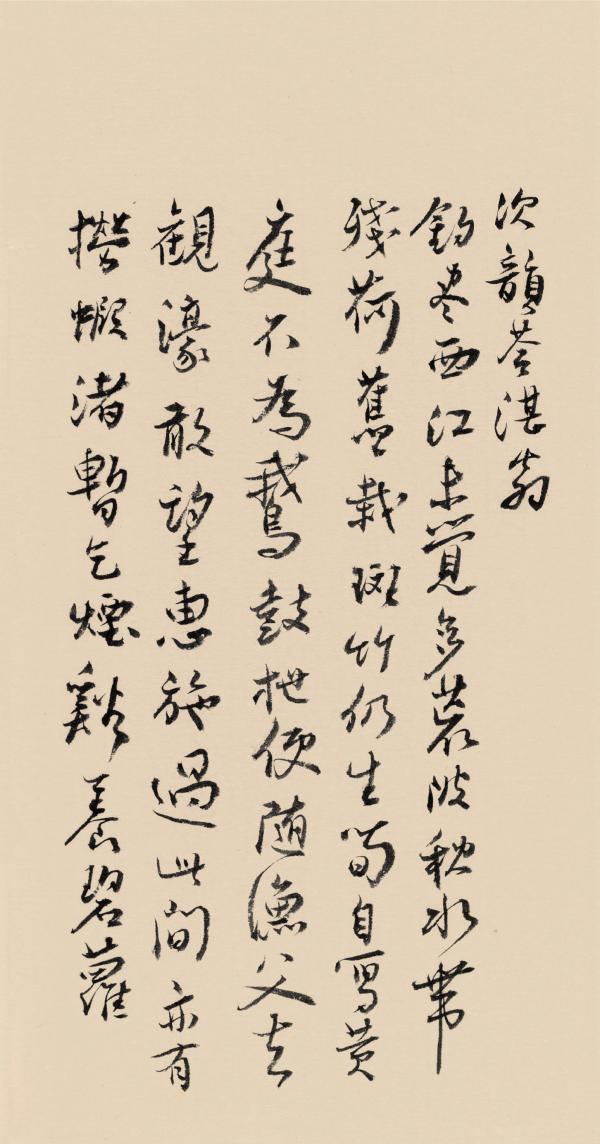 次韻荅湛翁
釣盡西江未覺多荒陂秋水帶
殘荷舊栽斑竹仍生筍自寫黄
庭不為鵞鼓枻便隨漁父去
觀濠敢望惠施過此間亦有
撈蝦渚暫乞煙谿養碧蘿